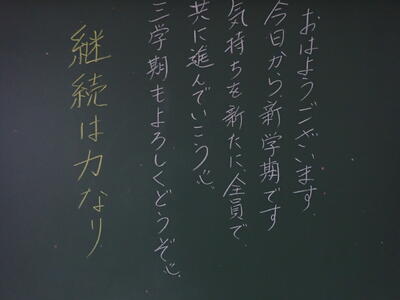 おはようございます
今日から新学期です
気持ちを新たに、全員で
共に進んでいこう心
三学期もよろしくどうぞ心
継続は力なり